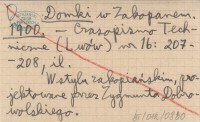 Domki w Zakopanem.
1900. — Czasopismo Tech-
niczne (Lwów) nr 16: 207-
-208, il.
W stylu zakopiańskim, pro-
jektowane przez Zygmunta Dobro-
wolskiego.